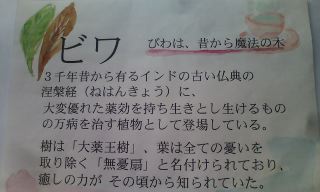 ビワ
びわは、昔から魔法の木
３千年昔から有るインドの古い仏典の
涅槃経（ねはんきょう）に、
大変優れた薬効を持ち生きとし生けるもの
の万病を治す植物として登場している。
樹は「大薬王樹」、葉は全ての憂いを
取り除く「無憂扇」と名付けられており、
癒しの力が その頃から知られていた。